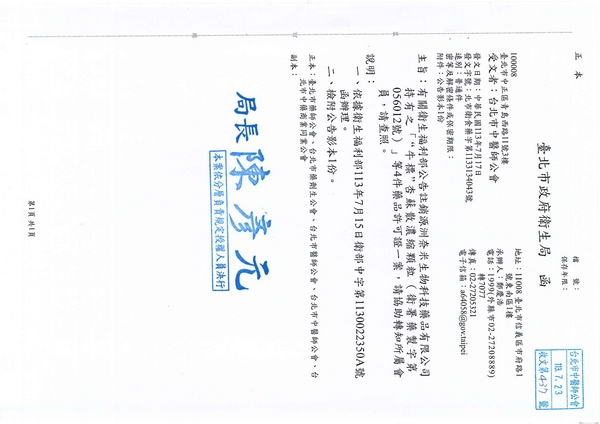 正本
檔　號：
保存年限：
臺北市政府衛生局　函
地址：11008 臺北市信義區市府路1
號東南區1樓
承辦人：鄭慶浩
電話：1999(外縣市02-27208889)
轉7077
傳真：02-27205321
電子信箱：a64058@gov.taipei
台北市中醫師公會
113.7.23
收文第437號
100008
臺北市中正區青島西路11號3樓
受文者：台北市中醫師公會
發文日期：中華民國113年7月17日
發文字號：北市衛食藥字第1133134043號
速別：普通件
密等及解密條件或保密期限：
附件：公告影本1份
主旨：有關衛生福利部公告註銷派洲奈米生物科技藥品有限公司
持有之「"牛標"杏蘇散濃縮顆粒（衛署藥製字第
056012號）」等4件藥品許可證一案，請協助轉知所屬會
員，請查照。
說明：
一、依據衛生福利部113年7月15日衛部中字第1130022350A號
函辦理。
二、檢附公告影本1份。
正本：臺北市藥師公會、台北市藥劑生公會、台北市醫師公會、台北市中醫師公會、台
北市中藥商業同業公會
副本：
局長 陳彥元
本案依分層負責規定授權人員決行
第1頁 共1頁